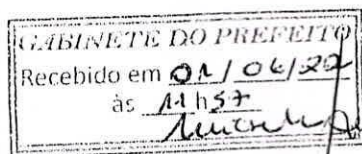 GABINETE DO PREFEITO
Recebido em 01/06/22
às 11h57